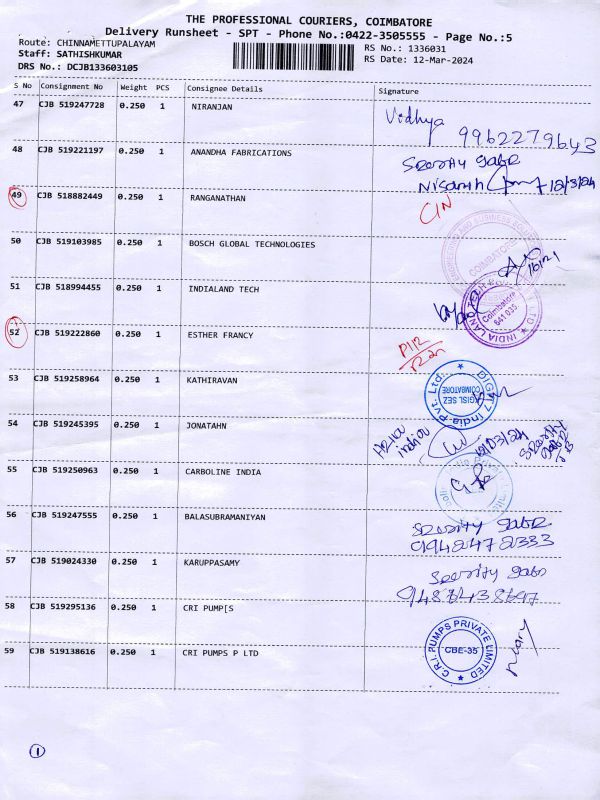 THE PROFESSIONAL COURIERS, COIMBATORE
Delivery Runsheet - SPT - Phone No.:0422-3505555 - Page No.:5
Route: CHINNAMETTUPALAYAM
RS No.: 1336031
Staff: SATHISHKUMAR
RS Date: 12-Mar-2024
DRS No.: DCJB133603105
S No Consignment No Weight PCS Consignee Details Signature
47 CJB 519247728 0.250 1 NIRANJAN
Vidhya
9962279643
48 CJB 519221197 0.250 1 ANANDHA FABRICATIONS
Nisanth 12/3/24
49 CJB 518882449 0.250 1 RANGANATHAN
CIN
50 CJB 519103985 0.250 1 BOSCH GLOBAL TECHNOLOGIES
COIMBATORE
51 CJB 518994455 0.250 1 INDIALAND TECH
Coimbatore
641 035
52 CJB 519222860 0.250 1 ESTHER FRANCY
53 CJB 519258964 0.250 1 KATHIRAVAN
DIGIT7 India Pvt. Ltd.
CGISL SEZ
COIMBATORE
54 CJB 519245395 0.250 1 JONATAHN
55 CJB 519250963 0.250 1 CARBOLINE INDIA
56 CJB 519247555 0.250 1 BALASUBRAMANIYAN
9942472333
57 CJB 519024330 0.250 1 KARUPPASAMY
58 CJB 519295136 0.250 1 CRI PUMP[S
59 CJB 519138616 0.250 1 CRI PUMPS P LTD
C.R.I. PUMPS PRIVATE LIMITED
CBE-35
1